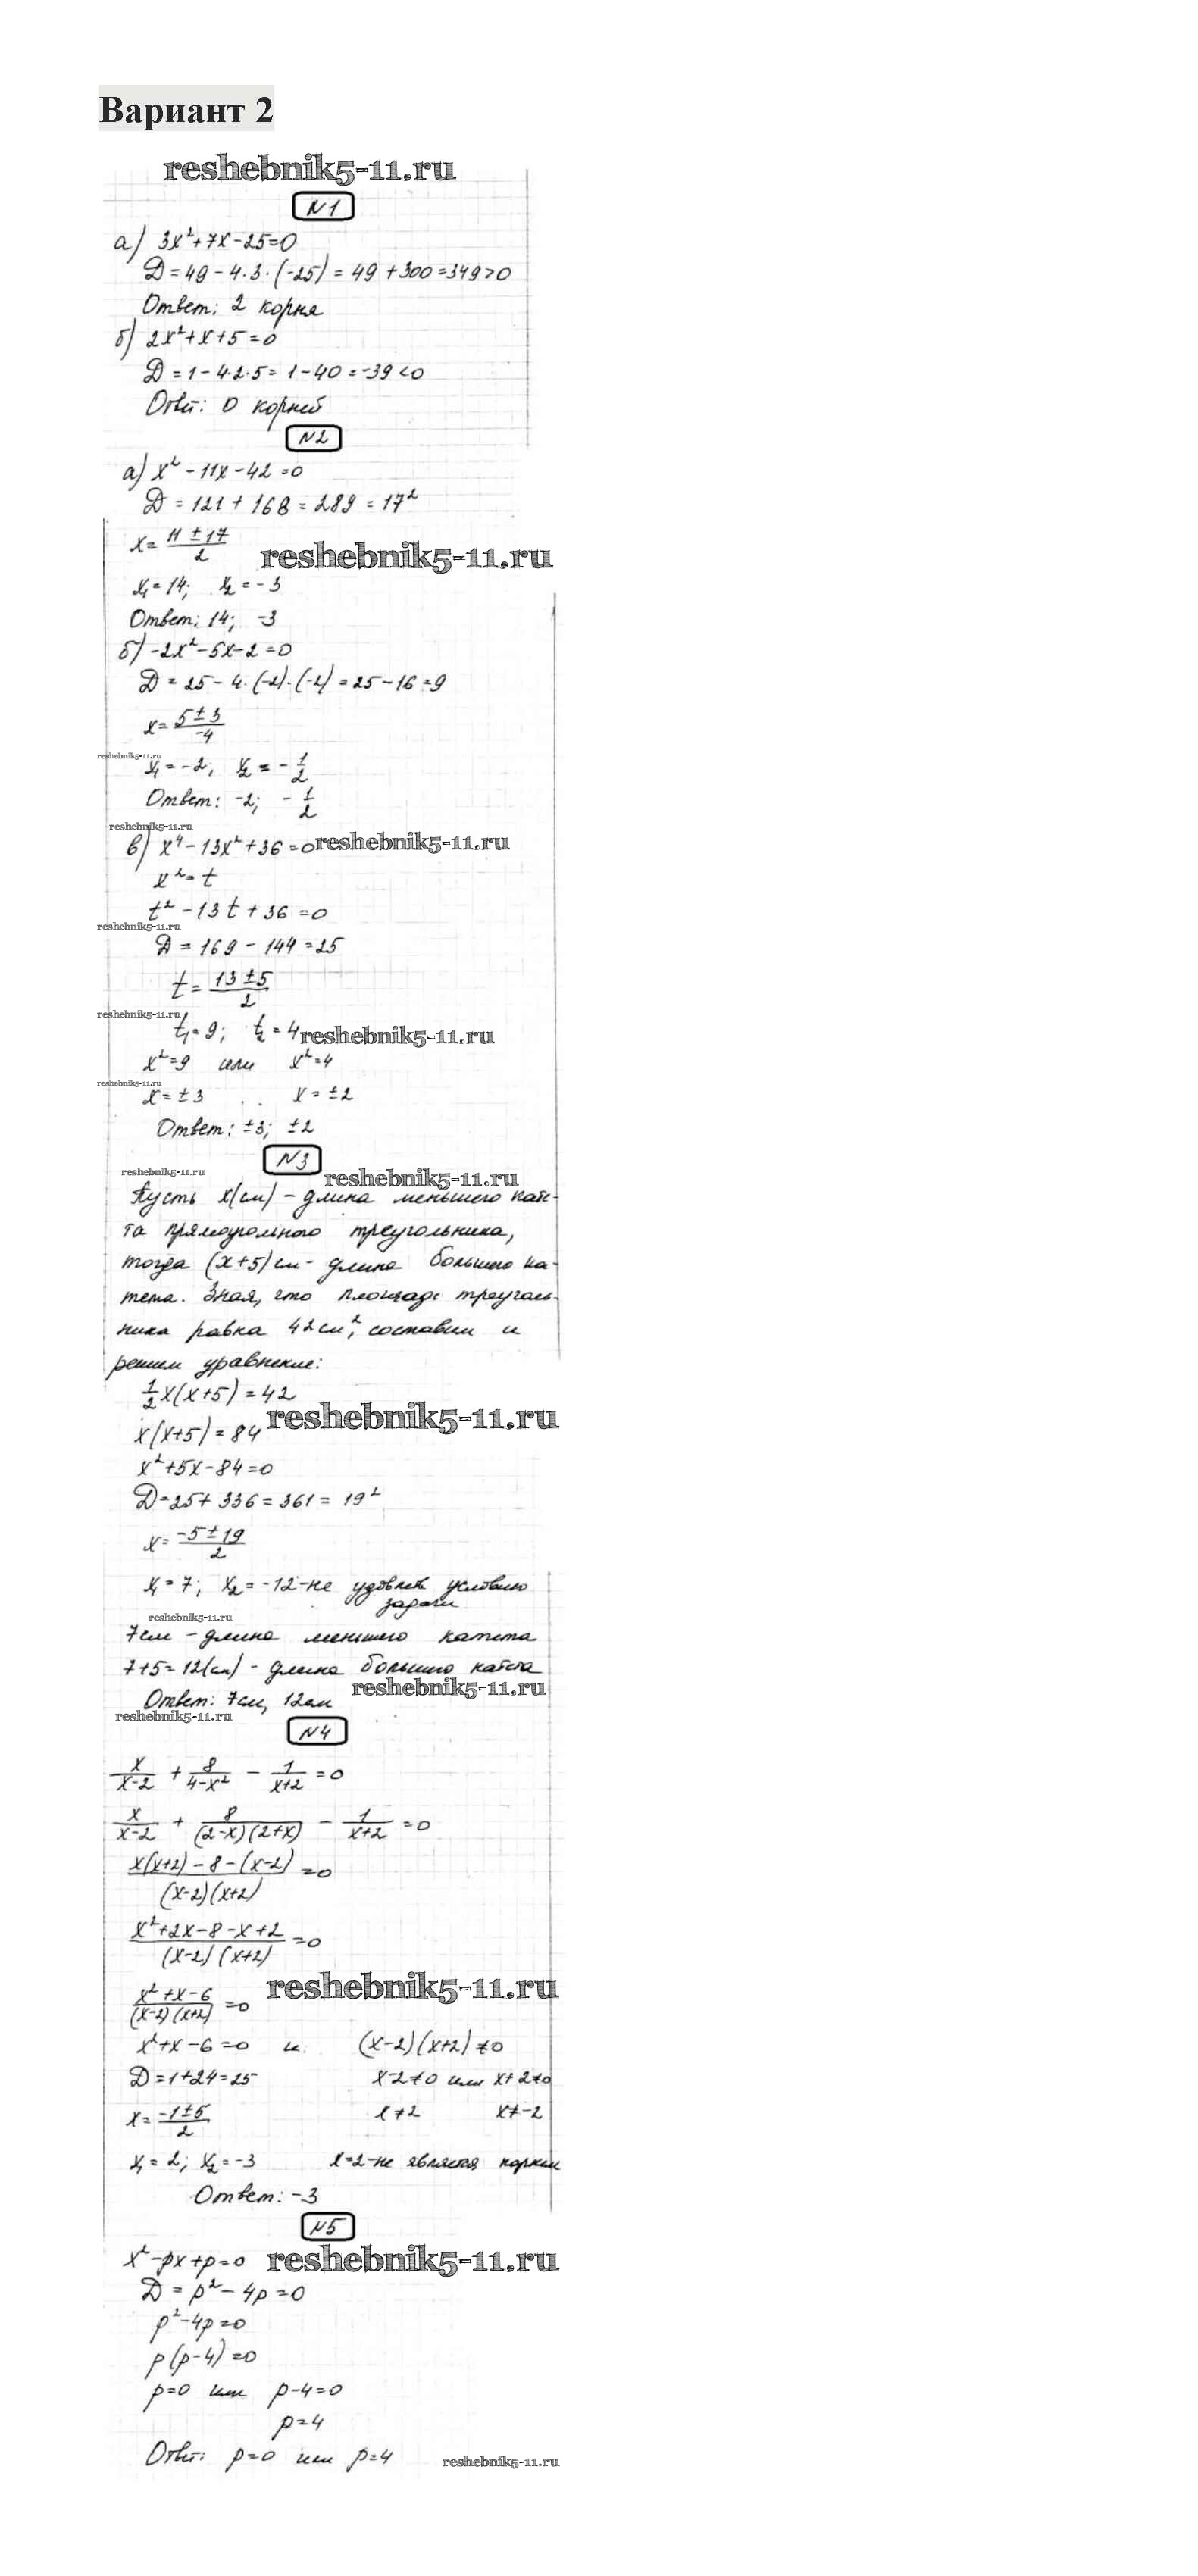 Вариант 2
reshebnik5-11.ru
N1
а) 3x²+7x-25=0
D=49-4·3·(-25)=49+300=349>0
Ответ: 2 корня
б) 2x²+x+5=0
D=1-4·2·5=1-40=-39<0
Отвт: 0 корней
N2
а) x²-11x-42=0
D=121+168=289=17²
x=(11±17)/2
reshebnik5-11.ru
x₁=14; x₂=-3
Ответ: 14; -3
б) -2x²-5x-2=0
D=25-4·(-2)·(-2)=25-16=9
x=(5±3)/-4
reshebnik5-11.ru
x₁=-2, x₂=-1/2
Ответ: -2; -1/2
reshebnik5-11.ru
в) x⁴-13x²+36=0 reshebnik5-11.ru
x²=t
t²-13t+36=0
reshebnik5-11.ru
D=169-144=25
t=(13±5)/2
reshebnik5-11.ru
t₁=9; t₂=4 reshebnik5-11.ru
x²=9 или x²=4
reshebnik5-11.ru
x=±3 x=±2
Ответ: ±3; ±2
N3
reshebnik5-11.ru
reshebnik5-11.ru
Пусть x(см) - длина меньшего кате-
та прямоугольного треугольника,
тогда (x+5)см - длина большего ка-
тета. Зная, что площадь треуголь-
ника равна 42см², составим и
решим уравнение:
1/2x(x+5)=42
reshebnik5-11.ru
x(x+5)=84
x²+5x-84=0
D=25+336=361=19²
x=(-5±19)/2
x₁=7; x₂=-12-не удовлетв условию
задачи
reshebnik5-11.ru
7см - длина меньшего катета
7+5=12(см) - длина большего катета
reshebnik5-11.ru
Ответ: 7см, 12см
reshebnik5-11.ru
N4
x/(x-2) + 8/(4-x²) - 1/(x+2) =0
x/(x-2) + 8/((2-x)(2+x)) - 1/(x+2) =0
(x(x+2)-8-(x-2))/((x-2)(x+2)) =0
(x²+2x-8-x+2)/((x-2)(x+2)) =0
reshebnik5-11.ru
(x²+x-6)/((x-2)(x+2)) =0
x²+x-6=0 и (x-2)(x+2)≠0
D=1+24=25 x-2≠0 или x+2≠0
x=(-1±5)/2 x≠2 x≠-2
x₁=2; x₂=-3 x=2-не является корнем
Ответ: -3
N5
x²-px+p=0 reshebnik5-11.ru
D=p²-4p=0
p²-4p=0
p(p-4)=0
p=0 или p-4=0
p=4
Отвт: p=0 или p=4 reshebnik5-11.ru